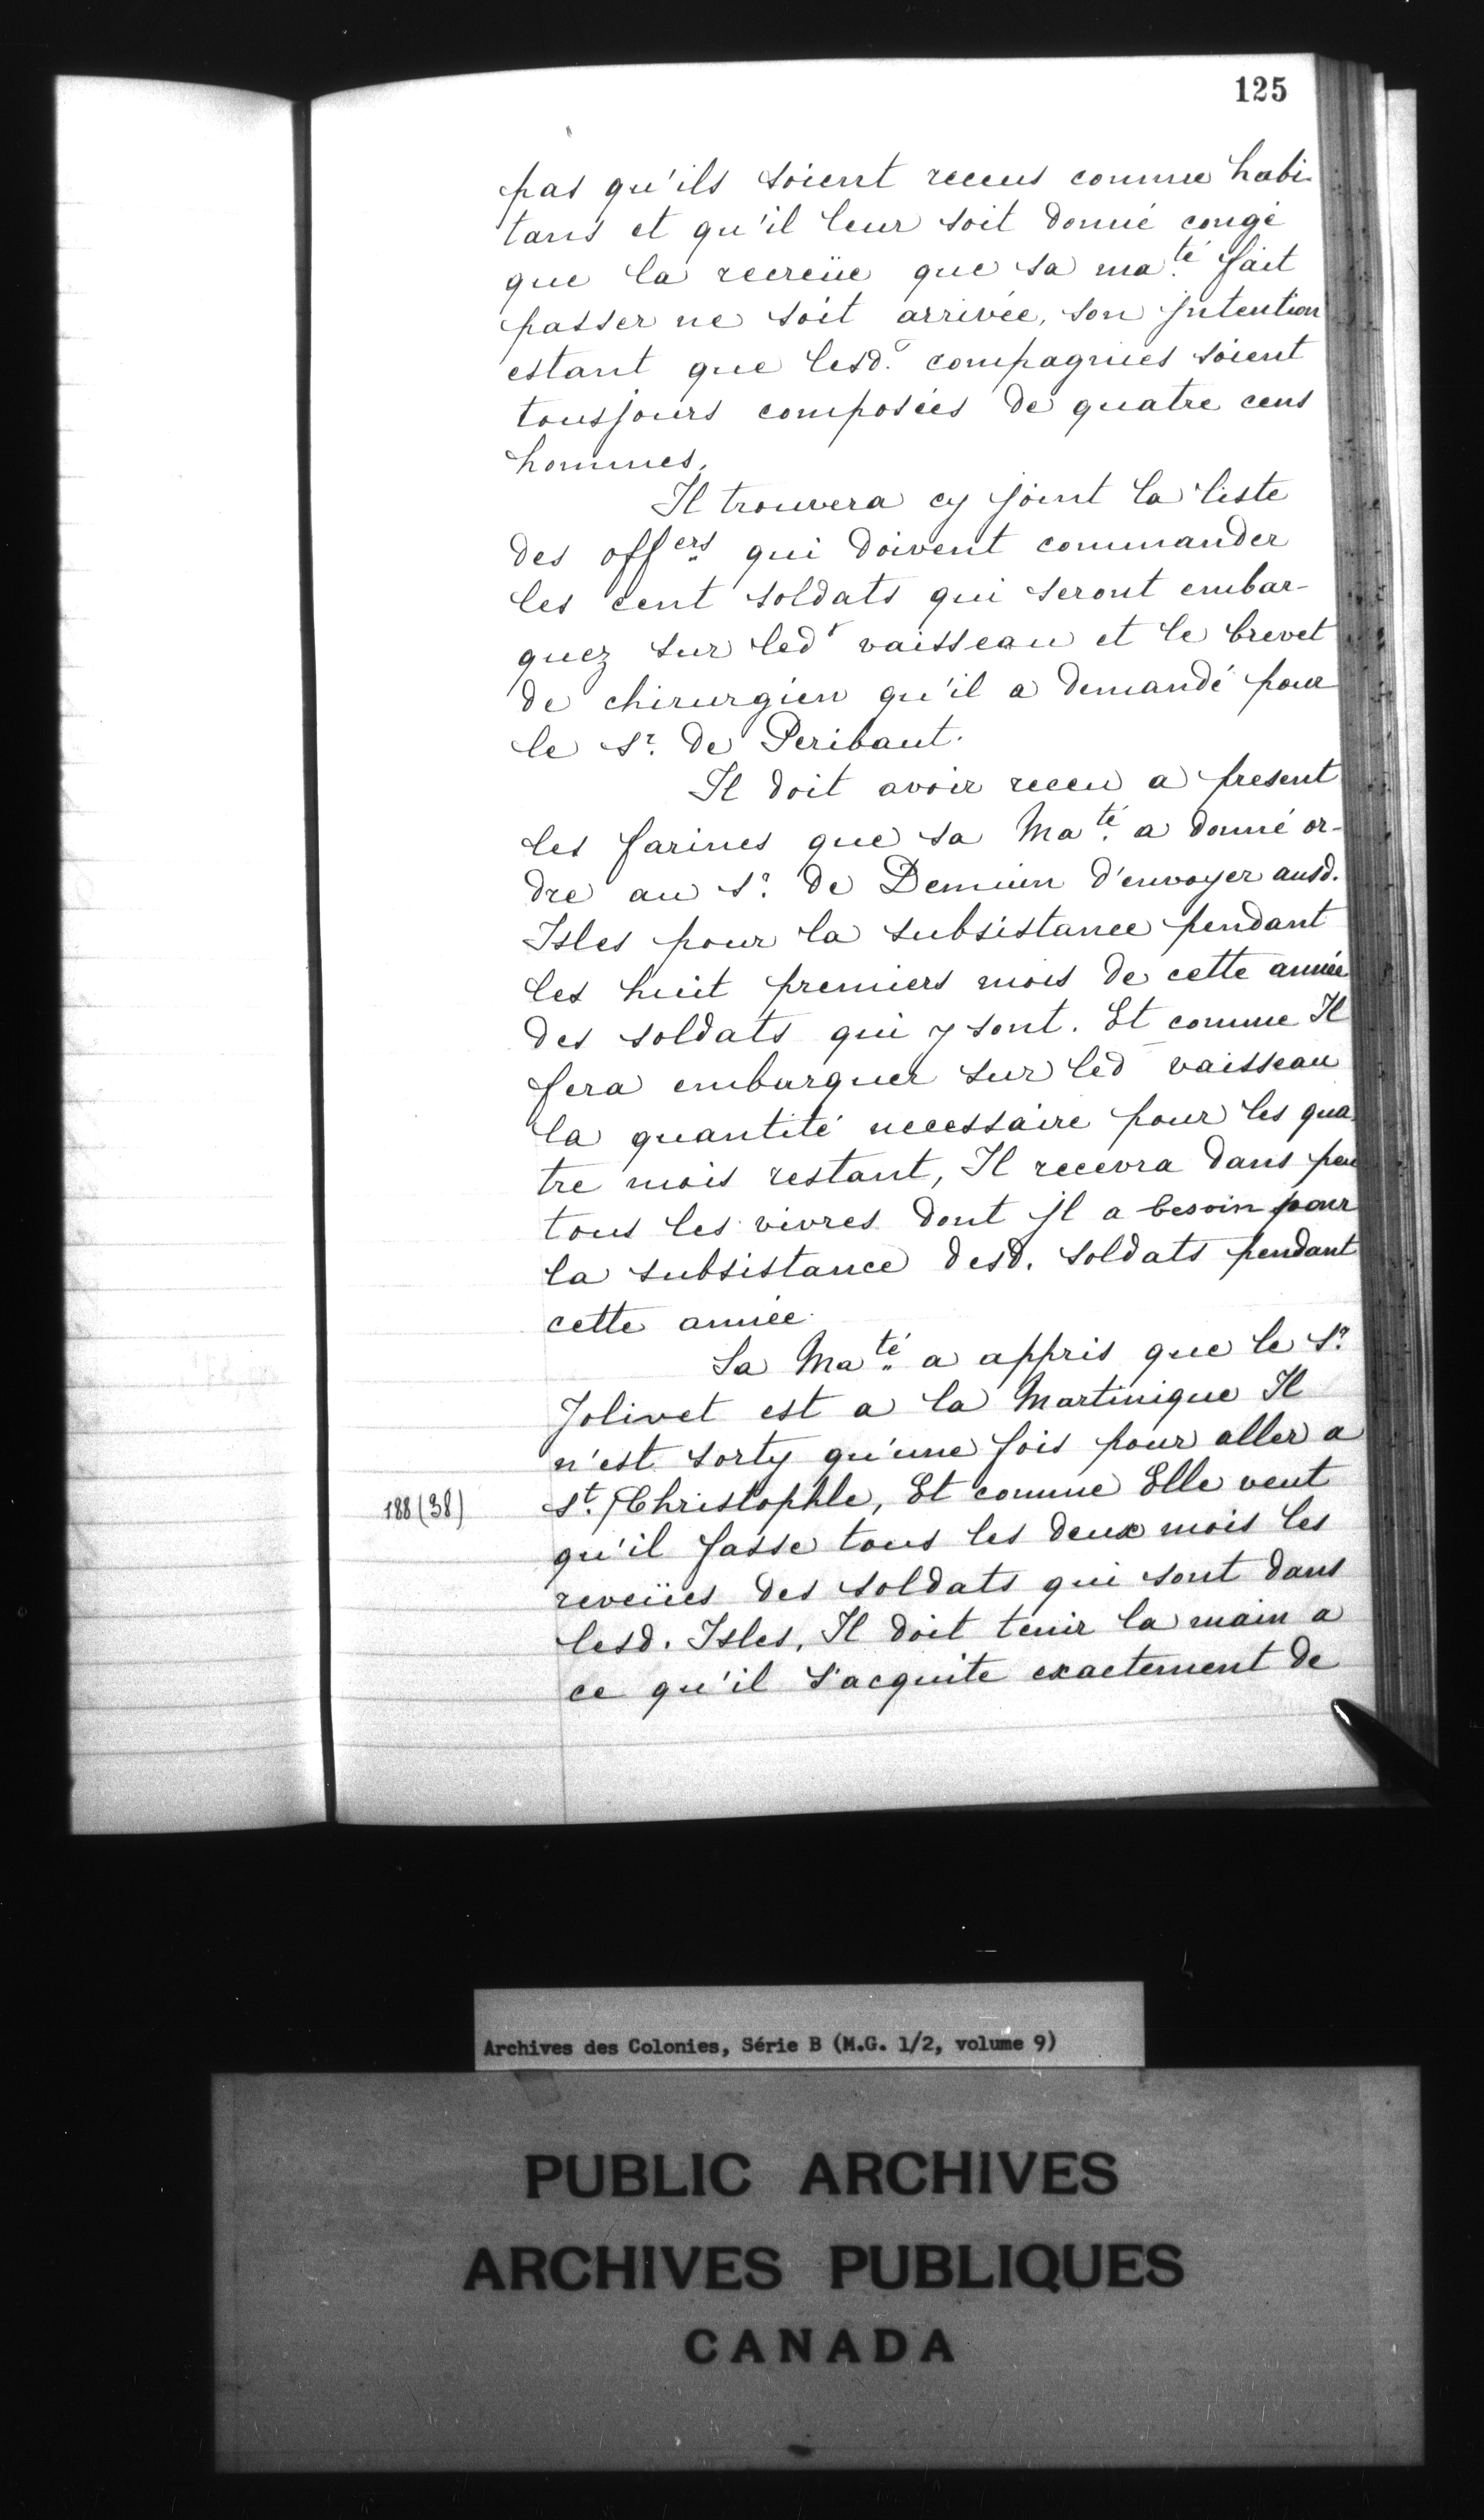 125
pas qu'ils soient receus comme habi-
tans et qu'il leur soit donné congé
que la recreüe que sa ma.té fait
passer ne soit arrivée, son jntention
estant que lesd. compagnies soient
tousjours composées de quatre cens
hommes.
Il trouvera cy joint la liste
des offers qui doivent commander
les cent soldats qui seront embar-
quez sur led. vaisseau et le brevet
de chirurgien qu'il a demandé pour
le Sr. de Peribaut.
Il doit avoir receu a present
les farines que sa Ma.té a donné or-
dre au Sr. de Demuin d'envoyer ausd.
Isles pour la subsistance pendant
les huit premiers mois de cette année
des soldats qui y sont. Et comme Il
fera embarquer sur led vaisseau
la quantité necessaire pour les qua-
tre mois restant, Il recevra dans peu
tous les vivres dont jl a besoin pour
la subsistance desd. soldats pendant
cette année.
Sa Ma.té a appris que le Sr.
Jolivet est a la Martinique Il
n'est sorty qu'une fois pour aller a
188 (38) St. / Christophle, Et comme Elle veut
qu'il fasse tous les deux mois les
reveües des soldats qui sont dans
lesd. Isles, Il doit tenir la main a
ce qu'il s'acquite exactement de
Archives des Colonies, Série B (M.G. 1/2, volume 9)
PUBLIC ARCHIVES
ARCHIVES PUBLIQUES
CANADA